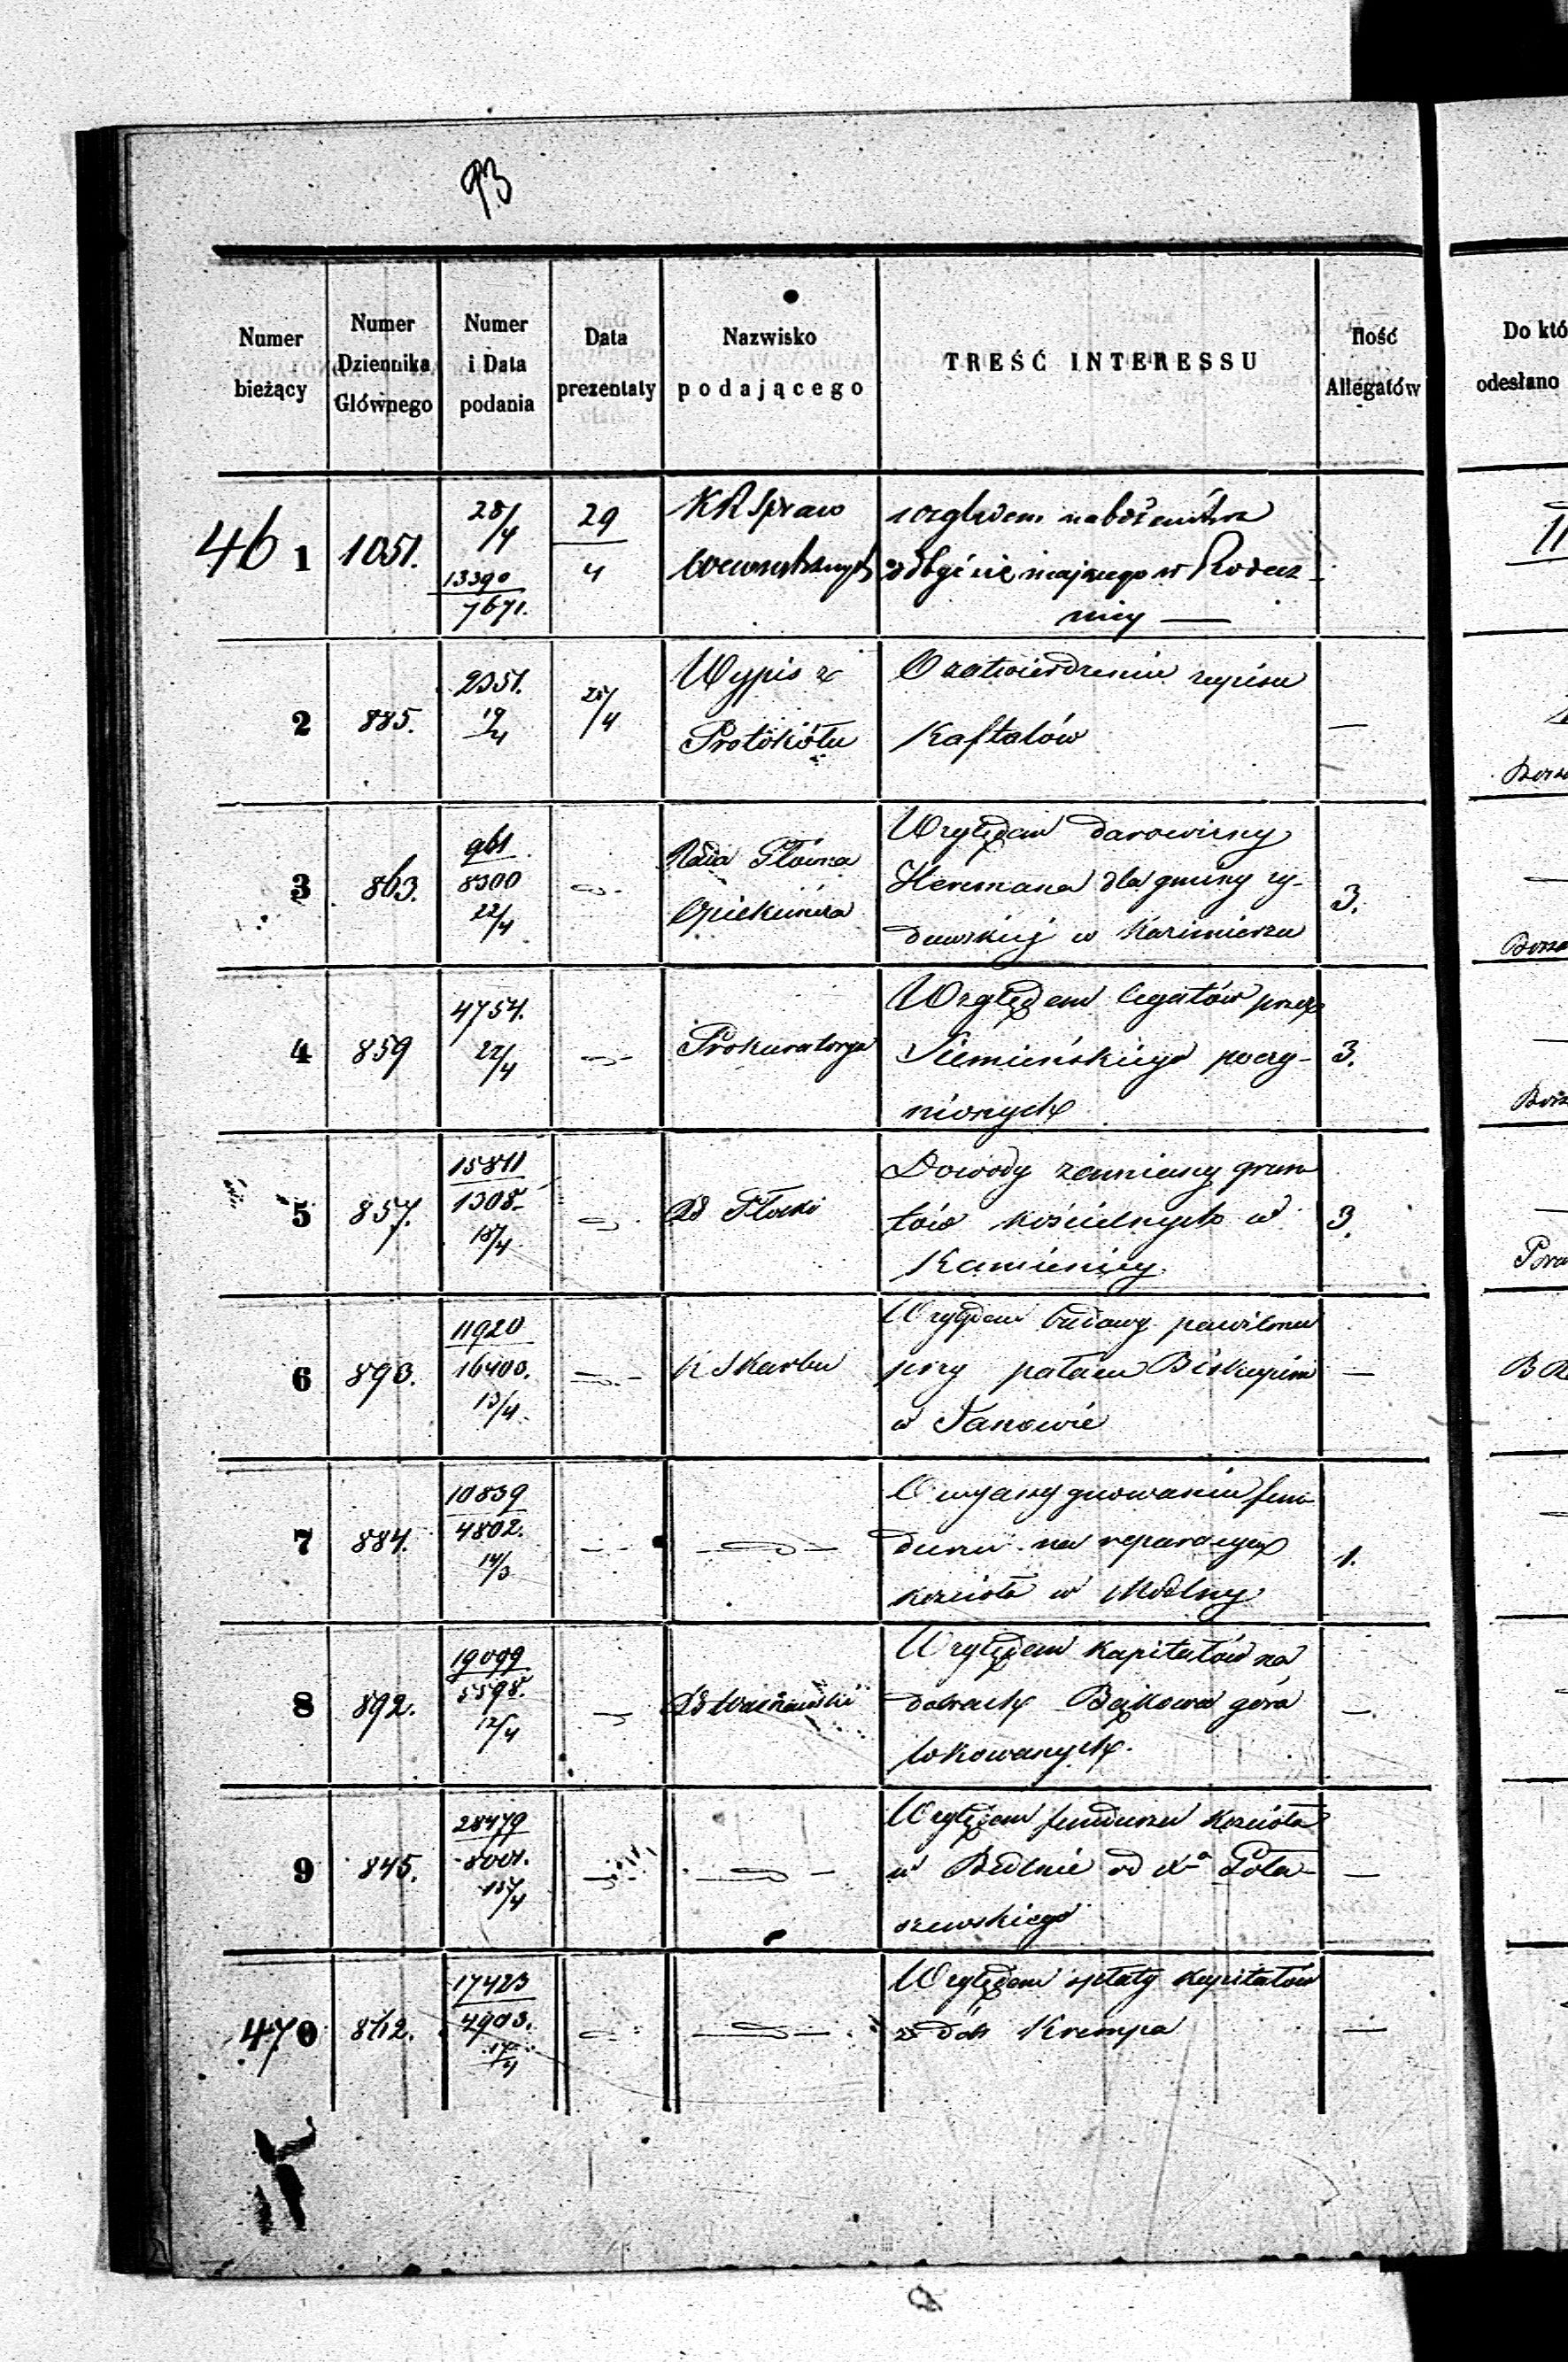 93
Numer bieżący
Numer Dziennika Głównego
Numer i Data podania
Data prezentaty
Nazwisko podającego
TREŚĆ INTERESSU
Ilość Allegatów
Do któ
odesłano
46 1
1051.
28/4
13390
7671.
29
4
KR Spraw
Wewnętrznych
względem nabożeństwa
odbyć się mającego w Radecz
nicy
2
885.
2351.
19/4
25/4
Wypis z
Protokółu
O zatwierdzeniu zapisu
Kaftalów
—
3
863.
961
8300
22/4
Rada Główna
Opiekuńcza
Względem darowizny
Hermana dla gminy ży-
dowskiej w Kazimierzu
3.
4
859
4754.
22/4
Prokuratorya
Względem legatów przez
Siemieńskiego poczy-
nionych
3.
5
857.
15811
1308.
18/4
RG Płocki
Dowody zamiany grun
tów kościelnych w
Kamienicy.
3.
6
893.
11920
16400.
13/4.
K Skarbu
Względem budowy pawilonu
przy pałacu Biskupim
w Janowie
—
7
884.
10839
4802.
14/3
O wyassygnowaniu fun
duszu na reparacyą
kościoła w Modlny
1.
8
892.
19099
5598.
12/4
RG Warszawski
Względem kapitałów na
dobrach Bąkowa góra
lokowanych.
—
9
845.
28479
8001.
15/4
Względem funduszu Kościoła
w Bedlnie od Xa Gola-
szewskiego
—
470
862.
17423
4903.
17/4
Względem spłaty kapitałów
z dóbr Krempa
—